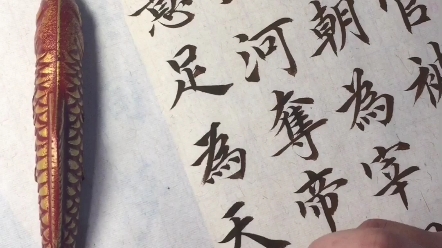 官
朝為宰
河奪帝
足為天